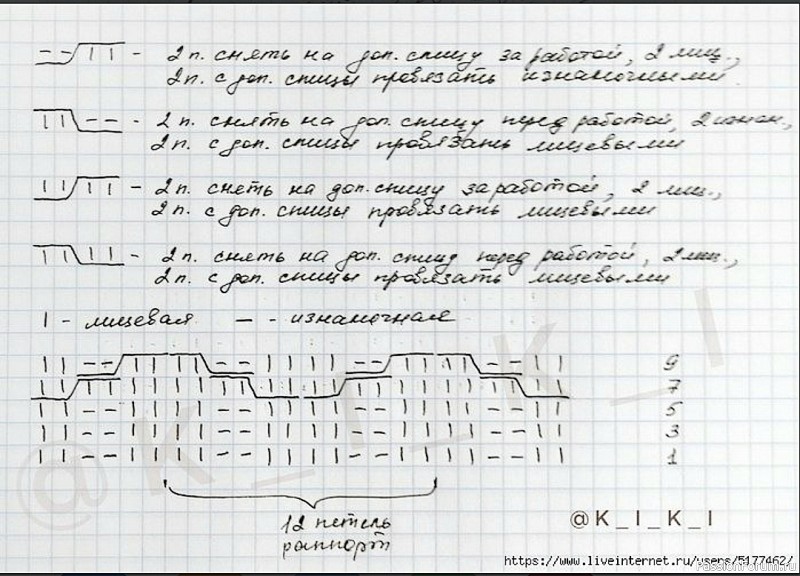 — — | | - 2 п. снять на доп. спицу за работой, 2 лиц.,
2 п. с доп. спицы провязать изнаночными
| | — — - 2 п. снять на доп. спицу перед работой, 2 изнан.,
2 п. с доп. спицы провязать лицевыми
| | | | - 2 п. снеть на доп. спицу за работой, 2 лиц.,
2 п. с доп. спицы провязать лицевыми
| | | | - 2 п. снять на доп. спицу перед работой, 2 лиц.,
2 п. с доп. спицы провязать лицевыми
| - лицевая — - изнаночная
9
7
5
3
1
12 петель
раппорт
@K_I_K_I
@K_I_K_I
https://www.liveinternet.ru/users/5177462/
PassionForum.ru